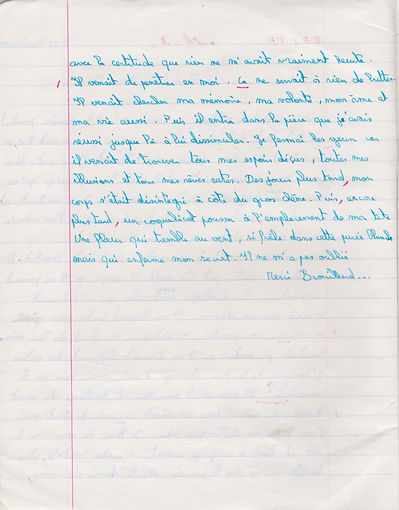 avec la certitude que rien ne m'avait vraiment heurté.
Il venait de pénétrer en moi. Ça ne servait à rien de lutter.
Il venait chercher ma mémoire, ma volonté, mon âme et
ma vie aussi. Puis il entra dans la pièce que j'avais
réussi jusque là à lui dissimuler. Je fermai les yeux car
il venait de trouver tous mes espoirs déçus, toutes mes
illusions et tous mes rêves ratés. Des jours plus tard, mon
corps s'était désintégré à côté du gros chêne. Puis, encore
plus tard, un coquelicot poussa à l'emplacement de ma tête
Une fleur qui tremble au vent, si frêle dans cette purée blanche
mais qui enferme mon secret. Il ne m'a pas oublié
Merci Brouillard...